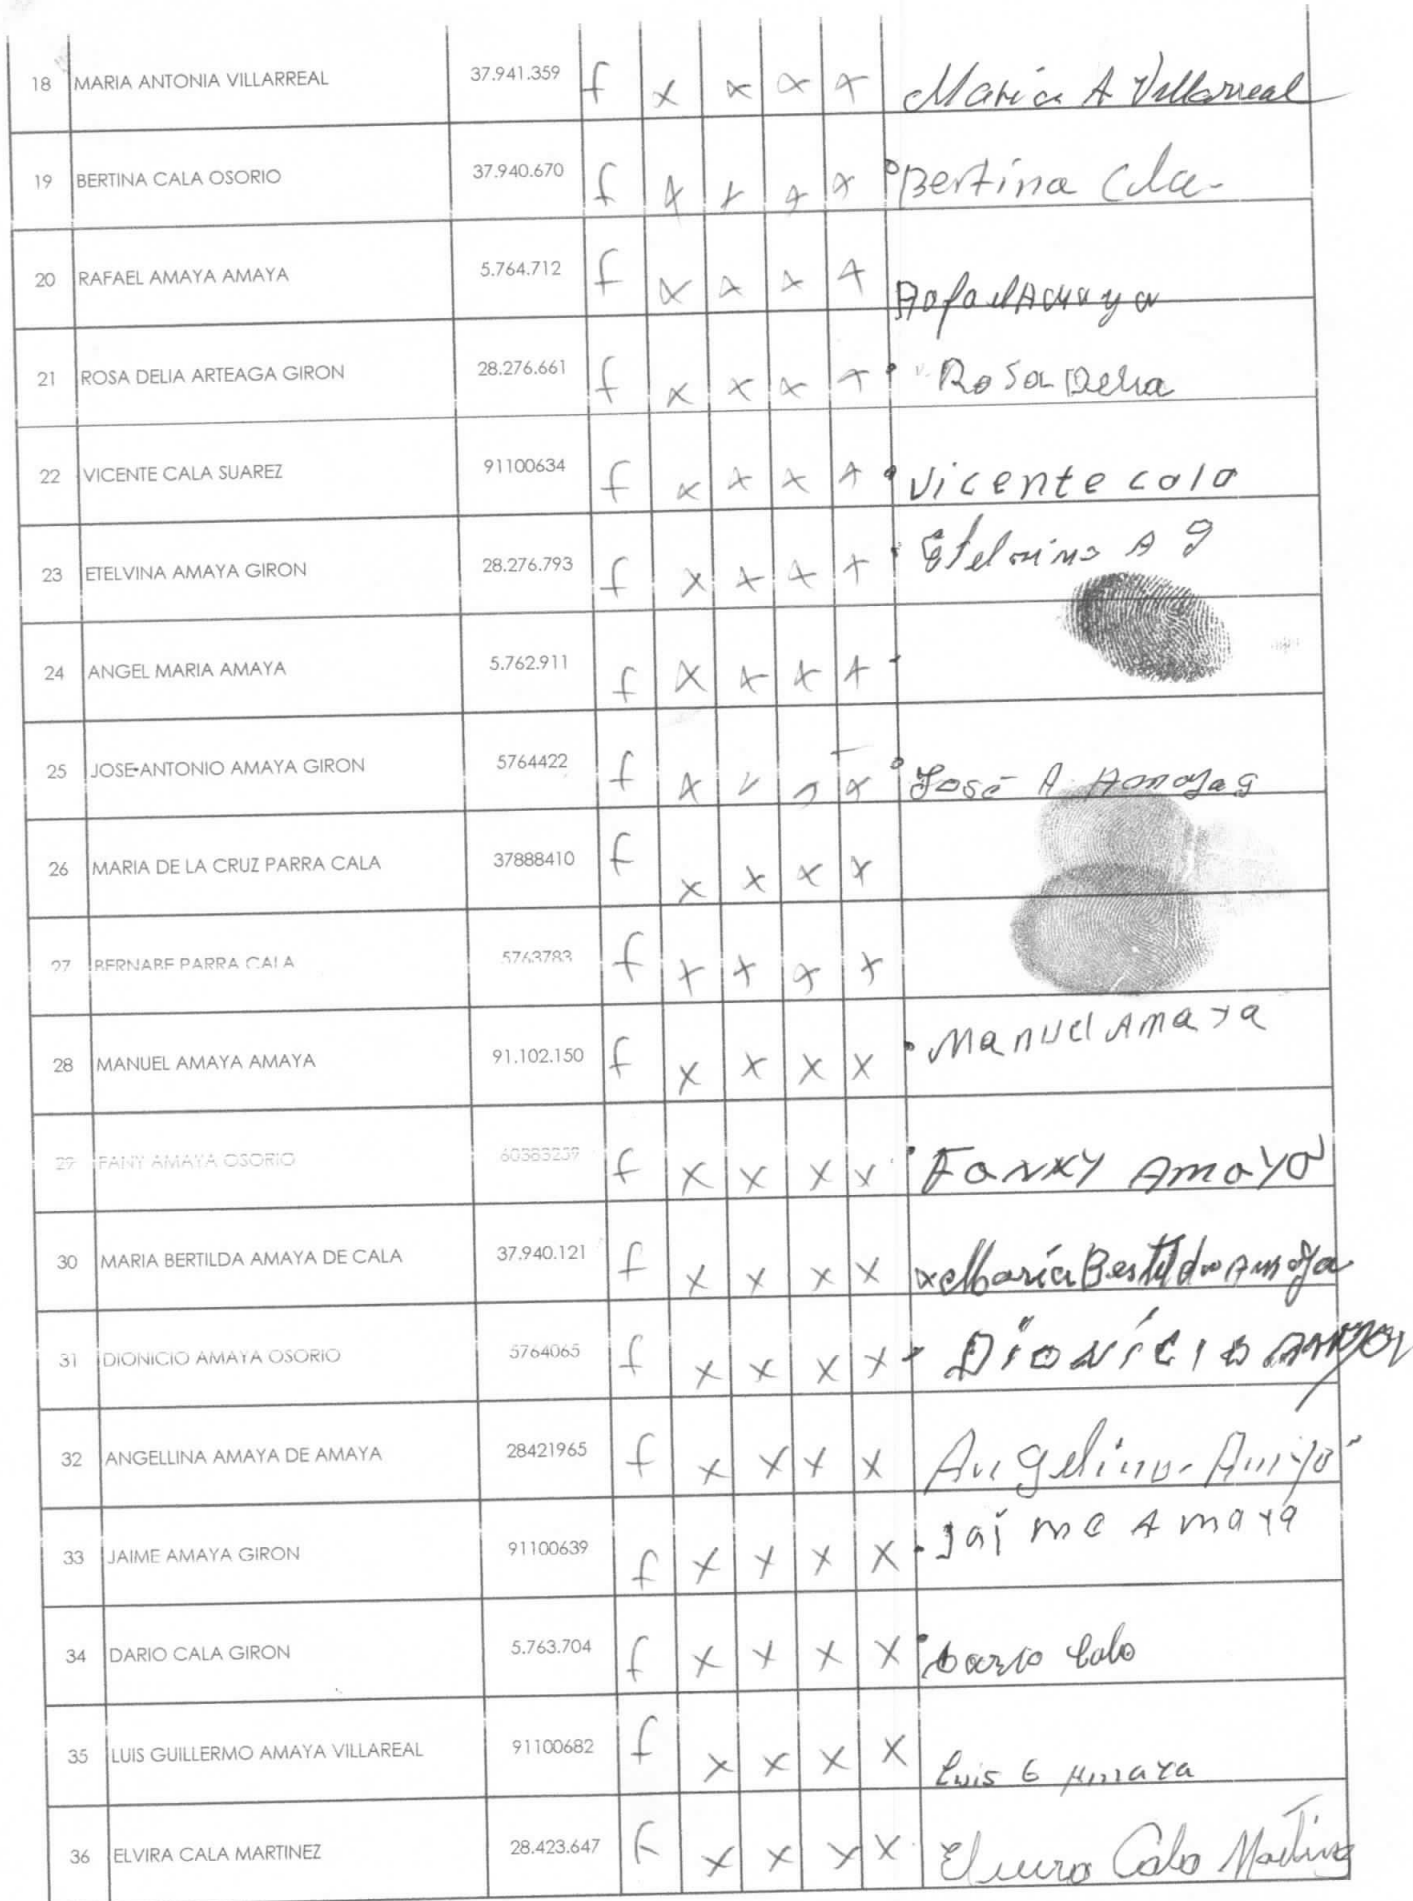 18 MARIA ANTONIA VILLARREAL 37.941.359 f x x x x Maria A Villarreal
19 BERTINA CALA OSORIO 37.940.670 f x x x x Bertina Cala
20 RAFAEL AMAYA AMAYA 5.764.712 f x x x x Rafael Amaya
21 ROSA DELIA ARTEAGA GIRON 28.276.661 f x x x x Rosa Delia
22 VICENTE CALA SUAREZ 91100634 f x x x x Vicente cala
23 ETELVINA AMAYA GIRON 28.276.793 f x x x x Etelvina A G
24 ANGEL MARIA AMAYA 5.762.911 f x x x x
25 JOSE ANTONIO AMAYA GIRON 5764422 f x x x x José A. Amaya G
26 MARIA DE LA CRUZ PARRA CALA 37888410 f x x x x
27 BERNABE PARRA CALA 5763783 f x x x x
28 MANUEL AMAYA AMAYA 91.102.150 f x x x x Manuel Amaya
29 FANY AMAYA OSORIO 60383239 f x x x x Fanny Amaya
30 MARIA BERTILDA AMAYA DE CALA 37.940.121 f x x x x x Maria Bertilda Amaya
31 DIONICIO AMAYA OSORIO 5764065 f x x x x Dionício Amaya
32 ANGELLINA AMAYA DE AMAYA 28421965 f x x x x Angelina Amaya
33 JAIME AMAYA GIRON 91100639 f x x x x Jaime Amaya
34 DARIO CALA GIRON 5.763.704 f x x x x Dario Cala
35 LUIS GUILLERMO AMAYA VILLAREAL 91100682 f x x x x Luis G Amaya
36 ELVIRA CALA MARTINEZ 28.423.647 f x x x x Elvira Cala Martinez